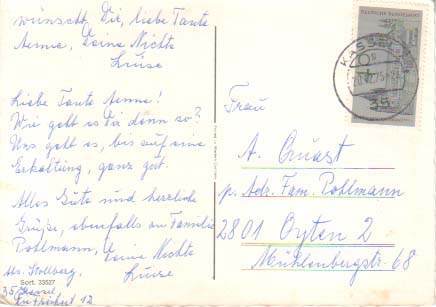 wünscht Dir, liebe Tante
Aenne, Deine Nichte
Luise
Liebe Tante Aenne!
Wie geht es Dir denn so?
Uns geht es, bis auf eine
Erkältung, ganz gut.
Alles Gute und herzliche
Grüße, ebenfalls an Familie
Pohlmann,
Deine Nichte
Luise
Abs. Stollberg
Sort. 33527
35 Kassel
12
DEUTSCHE BUNDESPOST
KASSEL
35
Frau
A. Quast
p. Adr. Fam. Pohlmann
2801 Oyten 2
Mühlenbergstr. 68